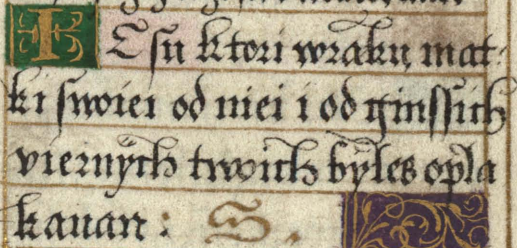 IEsu ktori wraku mat-
ki swoiei od niei i od ginssich
viernÿch twich bÿles opla
kavan: S.